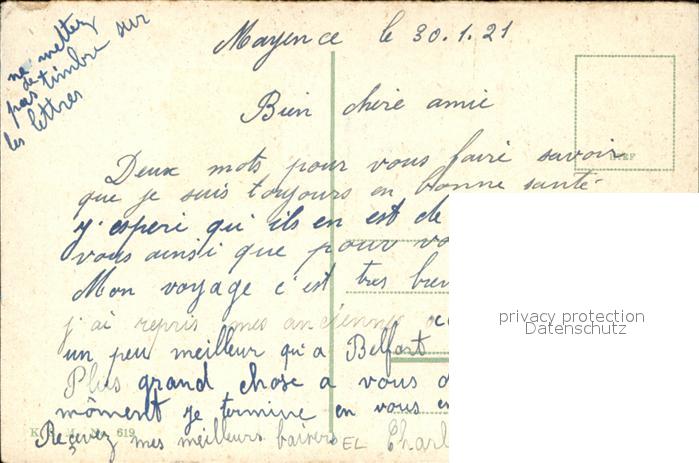 ne mettez
de
pas timbre sur
les lettres
Mayence le 30.1.21
Bien chere amie
Deux mots pour vous faire savoir
que je suis toujours en bonne santé
y'esperi qu'ils en est de
vous ainsi que pour vo
Mon voyage c'est tres bien
j'ai repris mes anciennes oc
un peu meilleur qu'a Belfort
Plus grand chose a vous d
môment je termine en vous e
Reçevez mes meilleurs baisers
Charl
619
privacy protection
Datenschutz